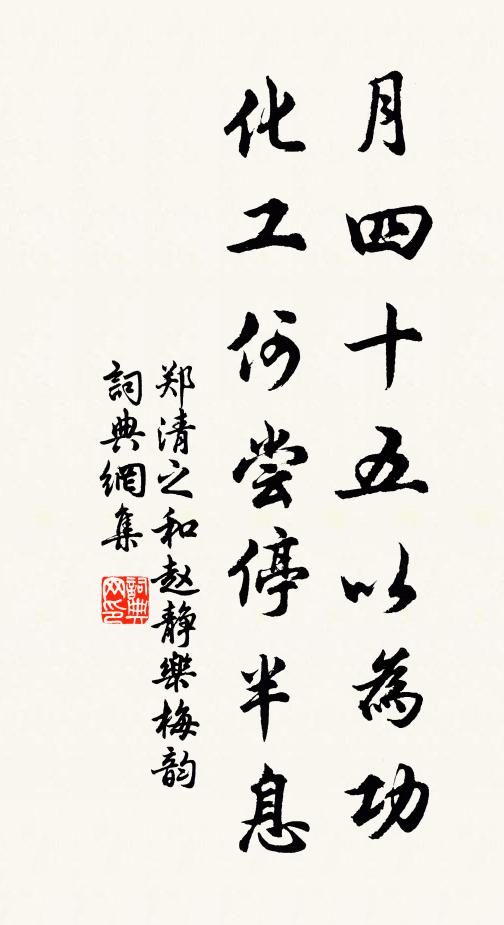 月四十五以為功
化工何尝停半息
郑清之和赵静樂梅韵
詞典網集
詞典